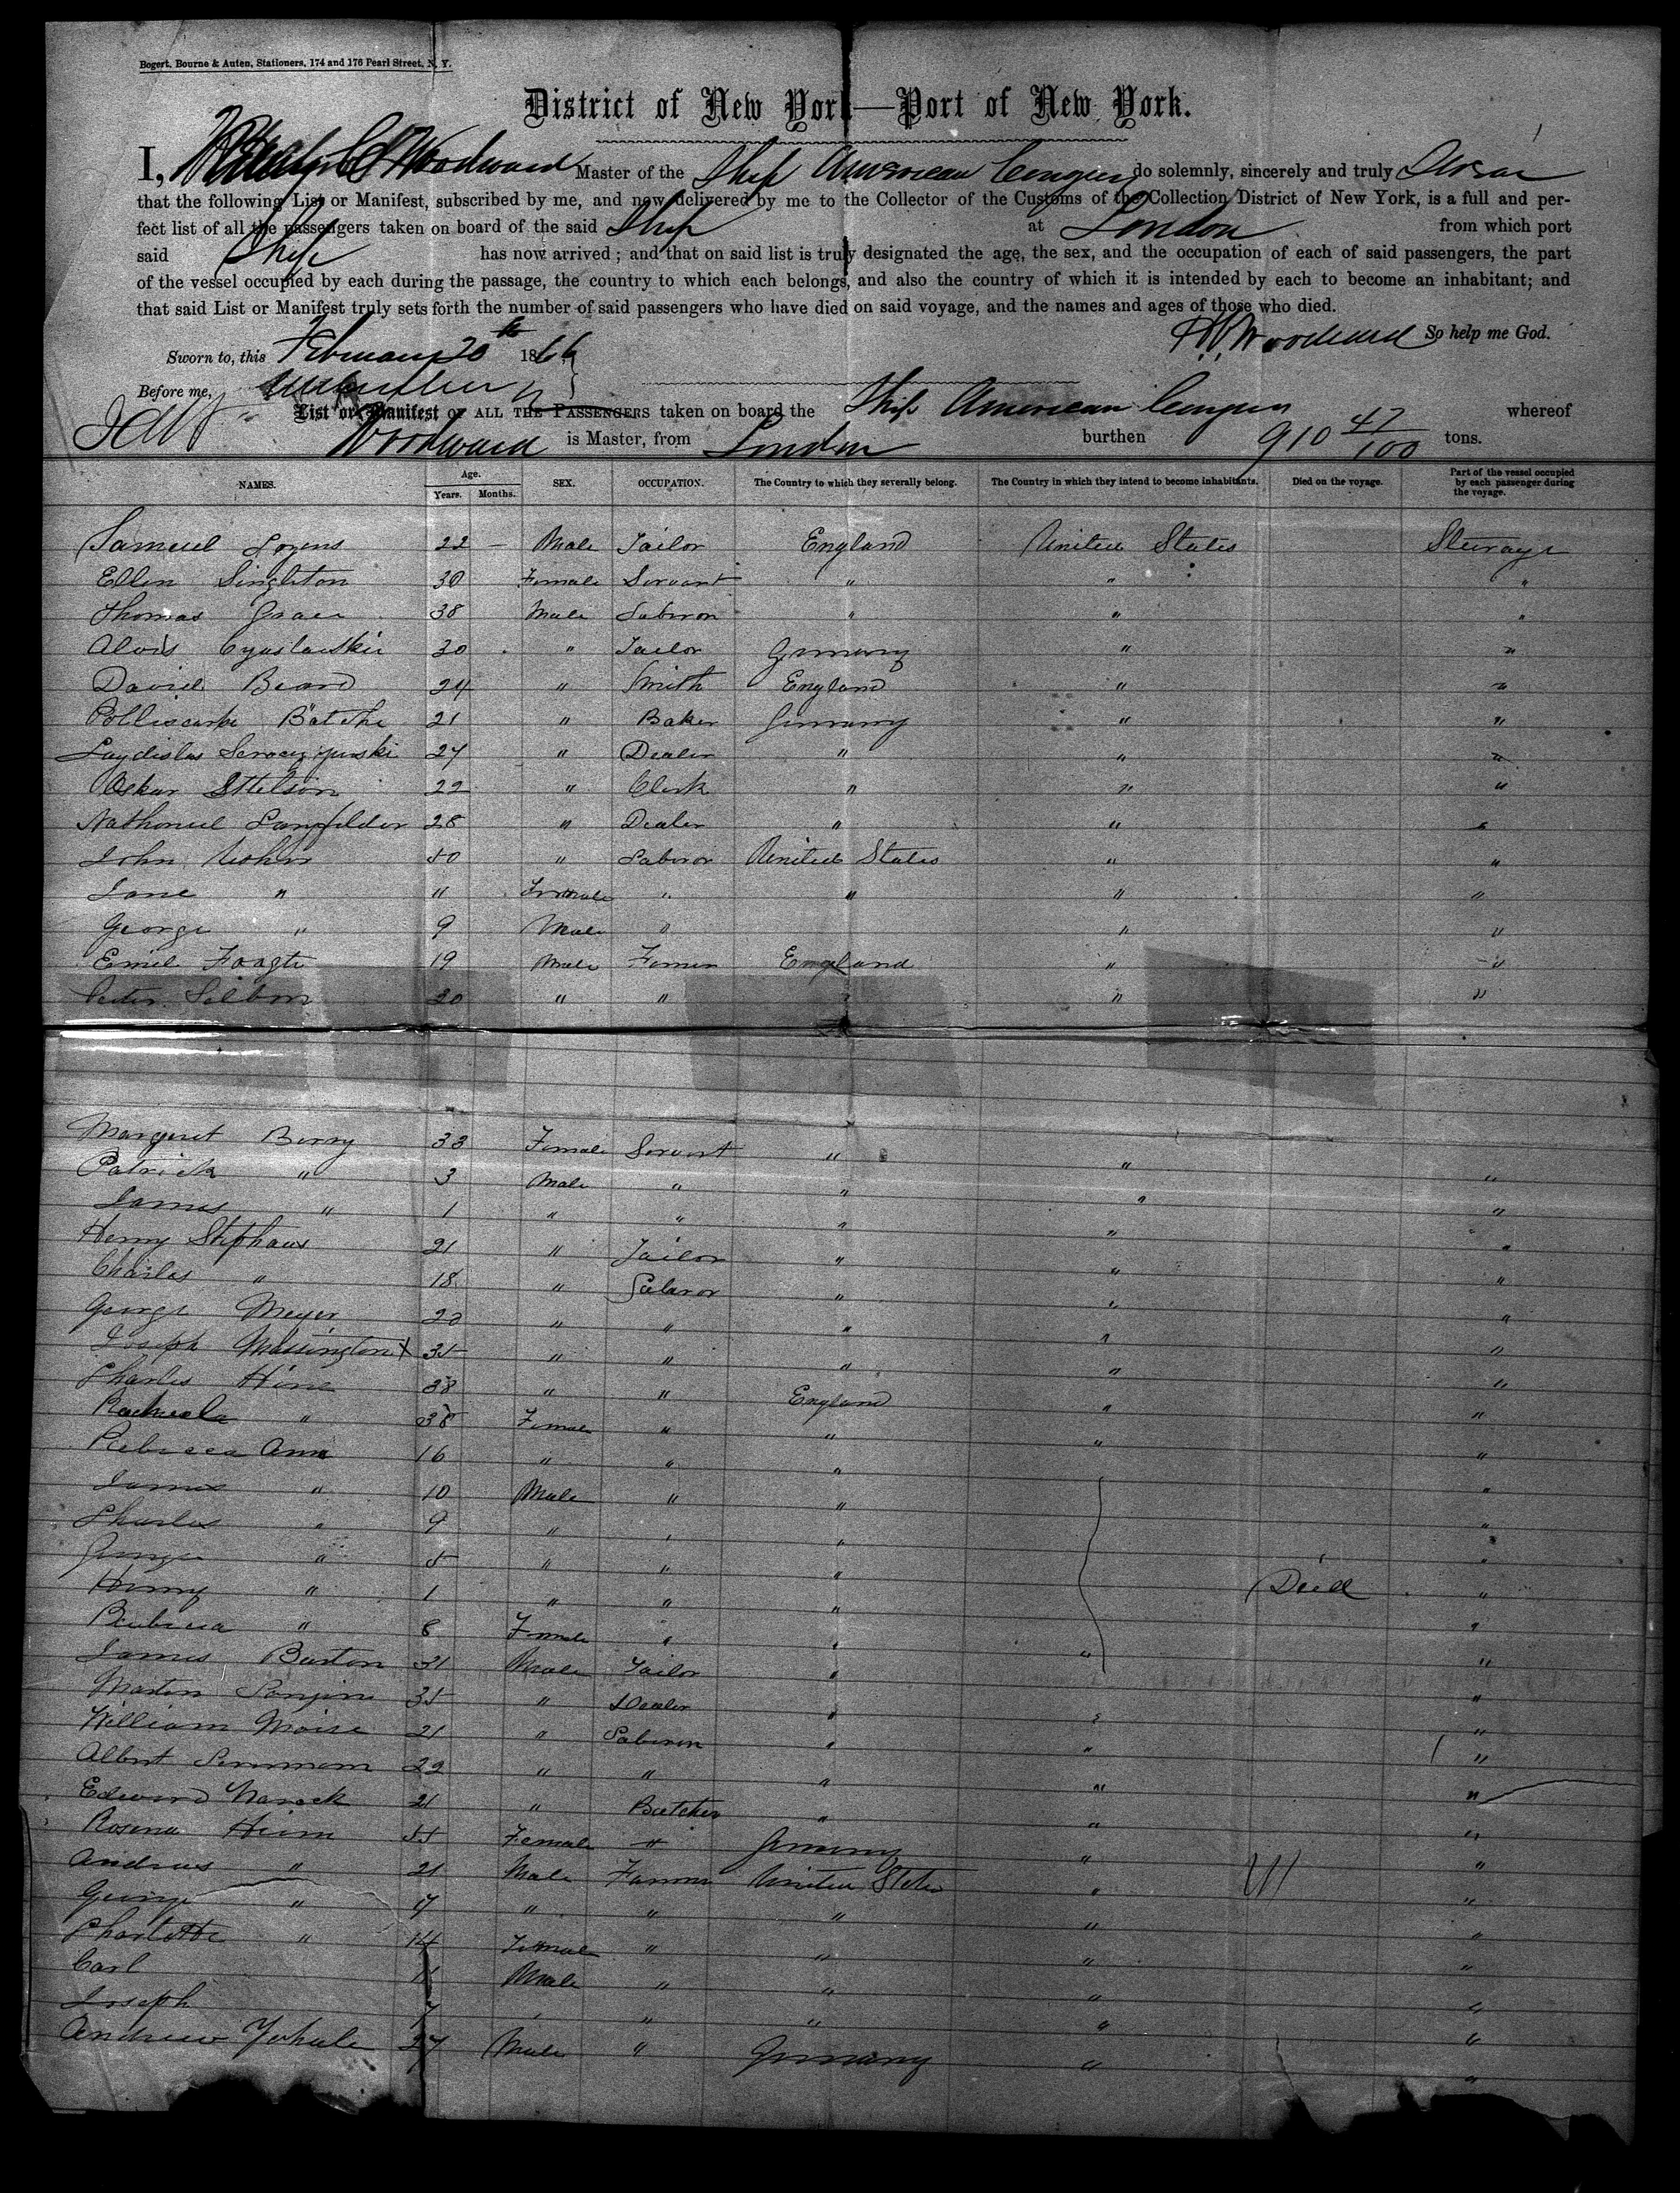 Bogert, Bourne & Auten, Stationers, 174 and 176 Pearl Street, N. Y.
District of New York—Port of New York.
I, Woodward Master of the Ship American Congress do solemnly, sincerely and truly Swear
that the following List or Manifest, subscribed by me, and now delivered by me to the Collector of the Customs of the Collection District of New York, is a full and per-
fect list of all the passengers taken on board of the said Ship at London from which port
said Ship has now arrived; and that on said list is truly designated the age, the sex, and the occupation of each of said passengers, the part
of the vessel occupied by each during the passage, the country to which each belongs, and also the country of which it is intended by each to become an inhabitant; and
that said List or Manifest truly sets forth the number of said passengers who have died on said voyage, and the names and ages of those who died.
Woodward So help me God.
Sworn to, this February 20th 1866
Before me,
List or Manifest OF ALL THE PASSENGERS taken on board the Ship American Congress whereof
Woodward is Master, from London burthen 910 47/100 tons.
NAMES. Age. Years. Months. SEX. OCCUPATION. The Country to which they severally belong. The Country in which they intend to become inhabitants. Died on the voyage. Part of the vessel occupied by each passenger during the voyage.
Samuel 22 — Male Tailor England United States Steerage
Ellen Singleton 30 Female Servant " " "
Thomas Grace 38 Male Laboror " " "
Alois 30 " Tailor Germany " "
David Beard 24 " Smith England " "
21 " Baker Germany " "
27 " Dealer " " "
Oskar 22 " Clerk " " "
Nathaniel 28 " Dealer " " "
John 50 " Laboror United States " "
Jane " 11 Female " " " "
George " 9 Male " " "
Emil 19 Male Farmer England " "
Peter 20 " " " " "
Margaret Berry 33 Female Servant " " "
Patrick " 3 Male " " " "
James " 1 " " " " "
Henry Stephens 21 " Tailor " " "
Charles " 18 " Laboror " " "
George Meyer 20 " " " " "
Joseph Massington x 35 " " " " "
Charles Hine 38 " " England " "
" 38 Female " " " "
Rebecca Ann 16 " " " "
James " 10 Male " " "
Charles " 9 " " " "
George " 5 " " " "
Henry " 1 " " " Died "
Rebecca " 8 Female " " " "
James Burton 31 Male Tailor " "
Martin 35 " Dealer " " "
William Moise 21 " Laboror " " "
Albert 22 " " " " "
Edward 21 " Butcher " " "
Rosena Heim 55 Female " Germany " "
Andrews " 21 Male Farmer United States " "
George " 17 " " " " "
Charlotte " 14 Female " " " "
Carl 11 Male " " " "
Joseph 7 " " " " "
Andrew 27 Male " Germany " "